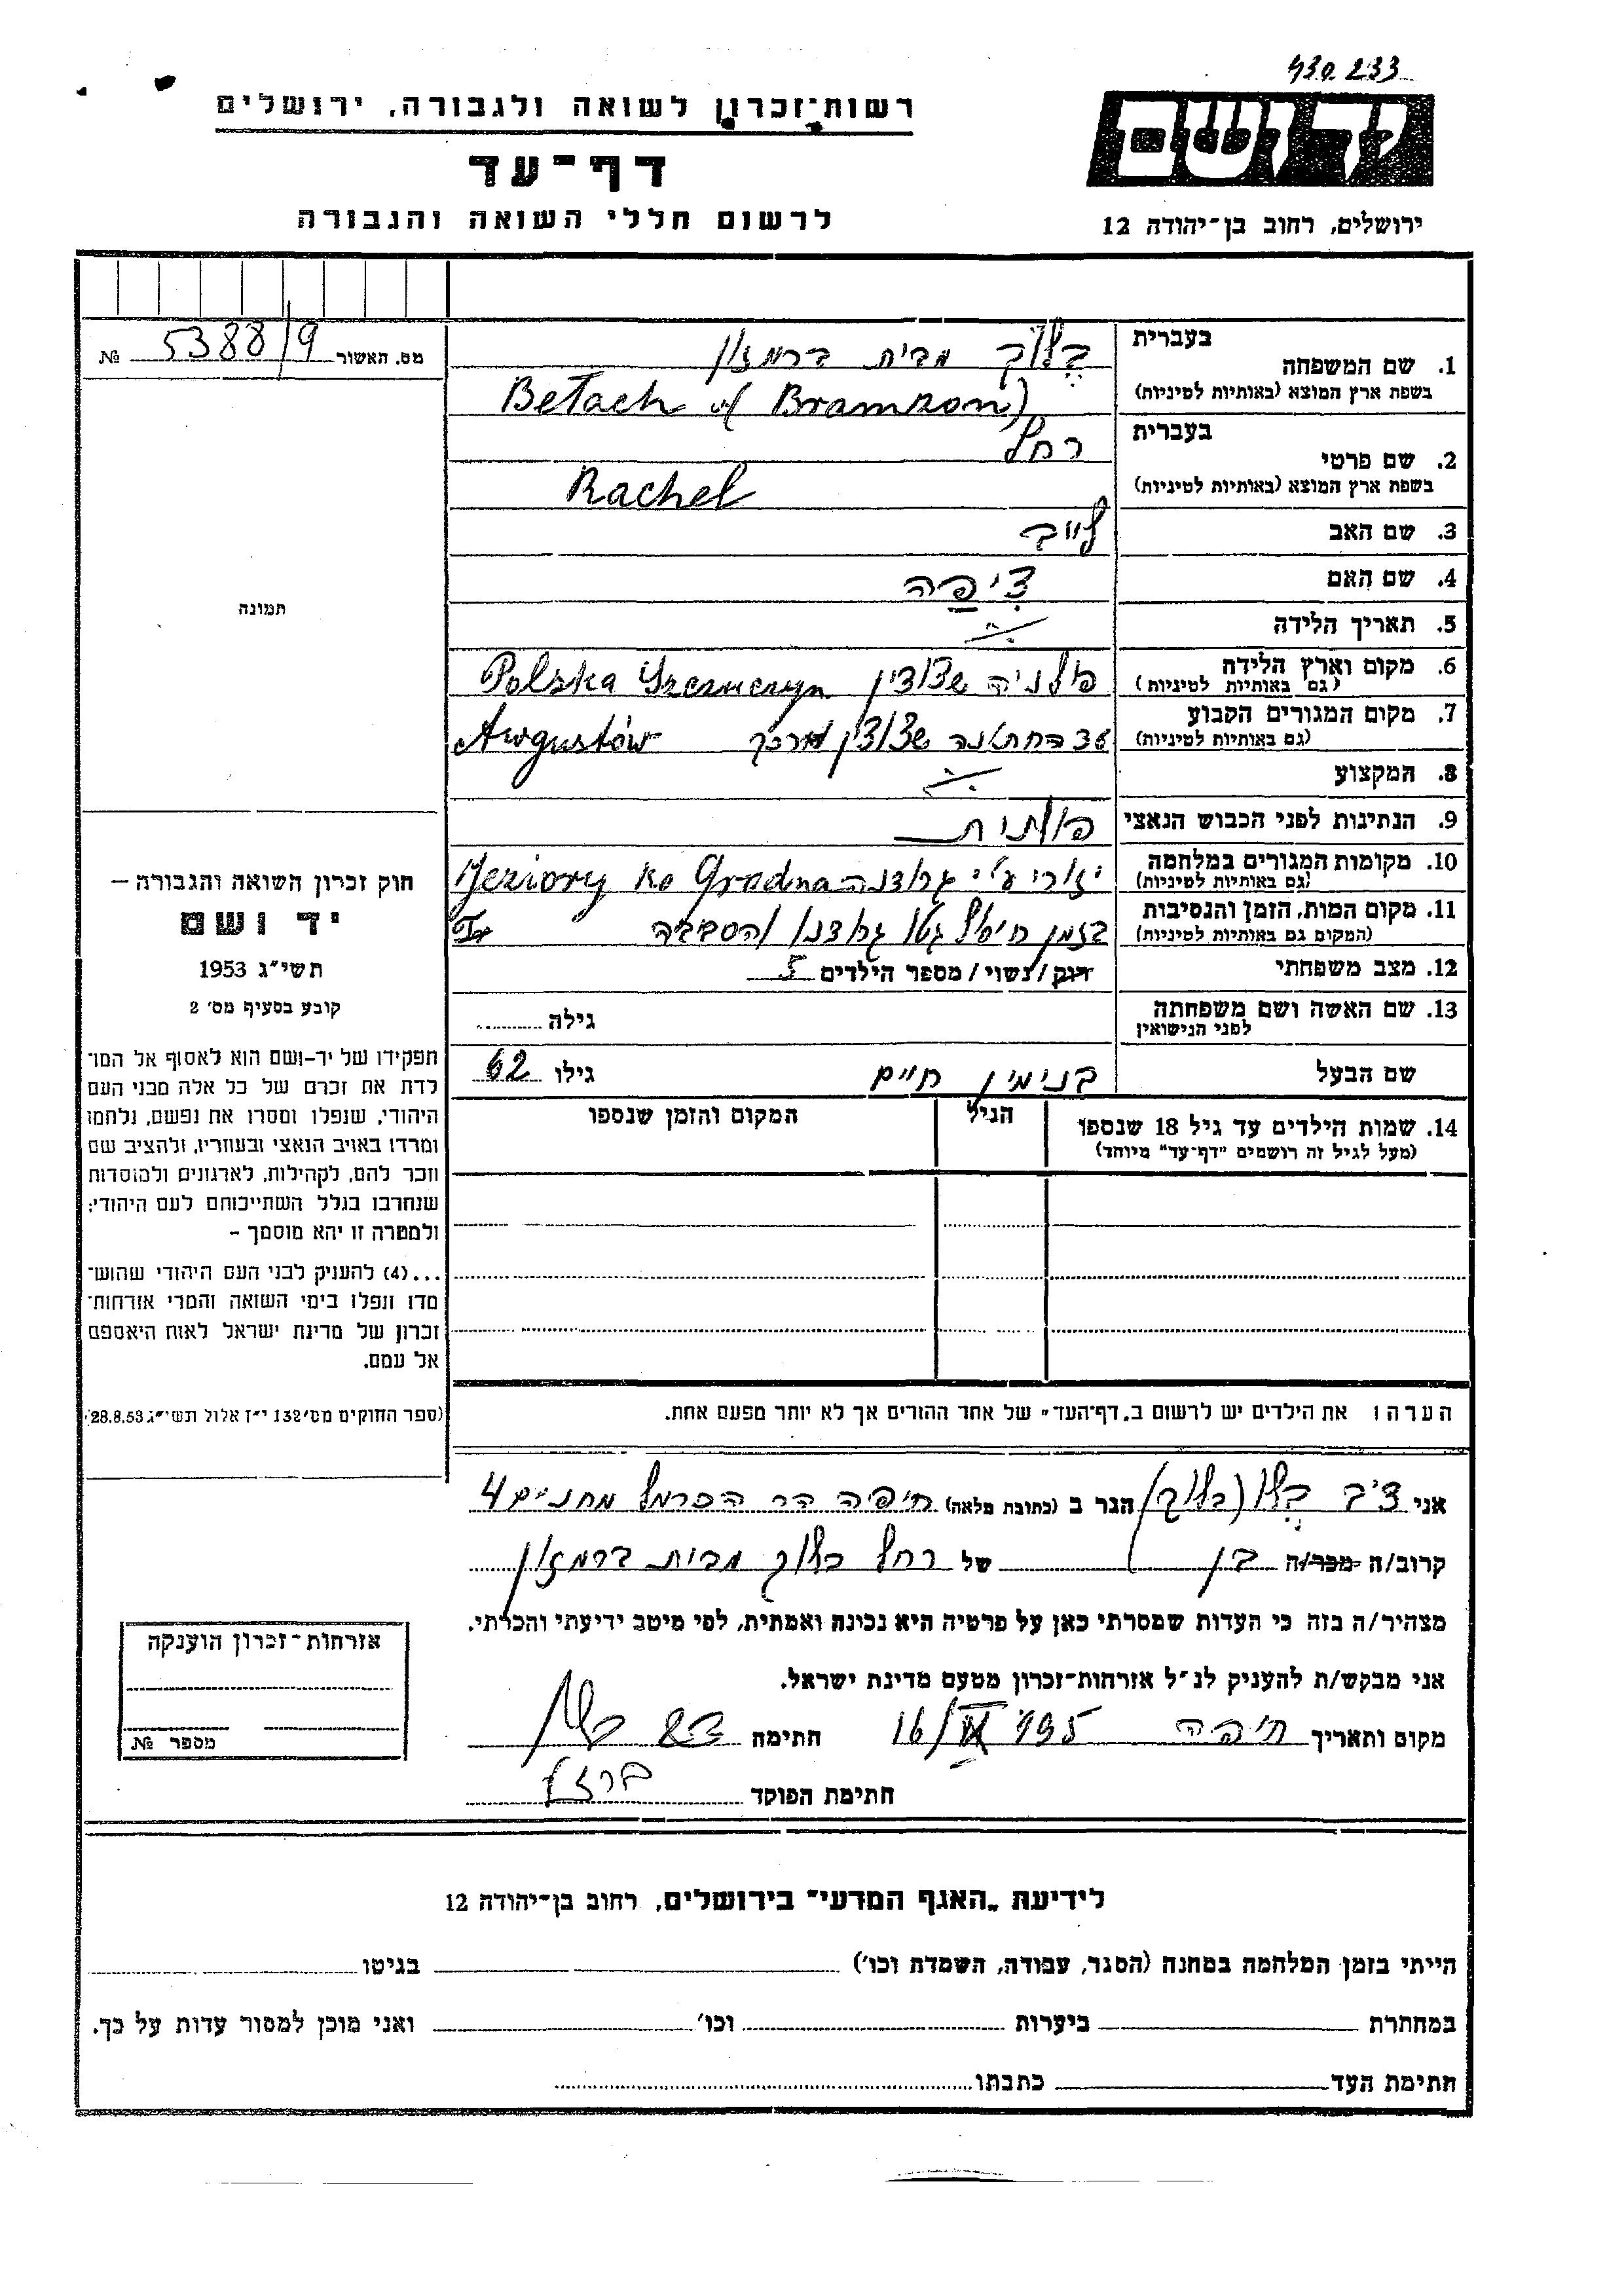 930.233
רשות־זכרון לשואה ולגבורה, ירושלים
יד ושם
דף־עד
לרשום חללי השואה והגבורה
ירושלים, רחוב בן־יהודה 12
מס. האשור 5388/9 №
בעברית
1. שם המשפחה בלוך מבית ברמזון
בשפת ארץ המוצא (באותיות לטיניות) Betach (Bramzon)
בעברית
2. שם פרטי רחל
בשפת ארץ המוצא (באותיות לטיניות) Rachel
3. שם האב לייב
4. שם האם ציפה
5. תאריך הלידה
6. מקום וארץ הלידה פולניה שצוצין Polska Szczuczyn
(גם באותיות לטיניות)
7. מקום המגורים הקבוע עד החתונה שצוצין Augustów
(גם באותיות לטיניות)
8. המקצוע
9. הנתינות לפני הכבוש הנאצי פולנית
10. מקומות המגורים במלחמה יזורי ע"י גרודנה Jeziory ko Grodna
(גם באותיות לטיניות)
11. מקום המות, הזמן והנסיבות בזמן חיסול גטו גרודנו והסביבה
(המקום גם באותיות לטיניות)
12. מצב משפחתי רווק/נשוי/מספר הילדים 5
13. שם האשה ושם משפחתה
לפני הנישואין
גילה
שם הבעל בנימין חיים גילו 62
14. שמות הילדים עד גיל 18 שנספו הגיל המקום והזמן שנספו
(מעל לגיל זה רושמים "דף־עד" מיוחד)
הערה: את הילדים יש לרשום ב„דף־העד" של אחד ההורים אך לא יותר מפעם אחת.
תמונה
חוק זכרון השואה והגבורה –
יד ושם
תשי"ג 1953
קובע בסעיף מס' 2
תפקידו של יד–ושם הוא לאסוף אל המו־
לדת את זכרם של כל אלה מבני העם
היהודי, שנפלו ומסרו את נפשם, נלחמו
ומרדו באויב הנאצי ובעוזריו, ולהציב שם
וזכר להם, לקהילות, לארגונים ולמוסדות
שנחרבו בגלל השתייכותם לעם היהודי;
ולמטרה זו יהא מוסמך –
...(4) להעניק לבני העם היהודי שהוש־
מדו ונפלו בימי השואה והמרי אזרחות־
זכרון של מדינת ישראל לאות היאספם
אל עמם.
(ספר החוקים מס' 132 י"ז אלול תשי"ג 28.8.53)
אני (בלוך) הגר ב (כתובת מלאה) חיפה הר הכרמל מחניים 4
קרוב/ה מכר/ה בן של רחל בלוך מבית ברמזון
מצהיר/ה בזה כי העדות שמסרתי כאן על פרטיה היא נכונה ואמתית, לפי מיטב ידיעתי והכרתי.
אני מבקש/ת להעניק לנ"ל אזרחות־זכרון מטעם מדינת ישראל.
מקום ותאריך חיפה חתימה
חתימת הפוקד
אזרחות־זכרון הוענקה
מספר №
לידיעת „האגף המדעי" בירושלים, רחוב בן־יהודה 12
הייתי בזמן המלחמה במחנה (הסגר, עבודה, השמדת וכו') בגיטו
במחתרת ביערות וכו' ואני מוכן למסור עדות על כך.
חתימת העד כתבתו